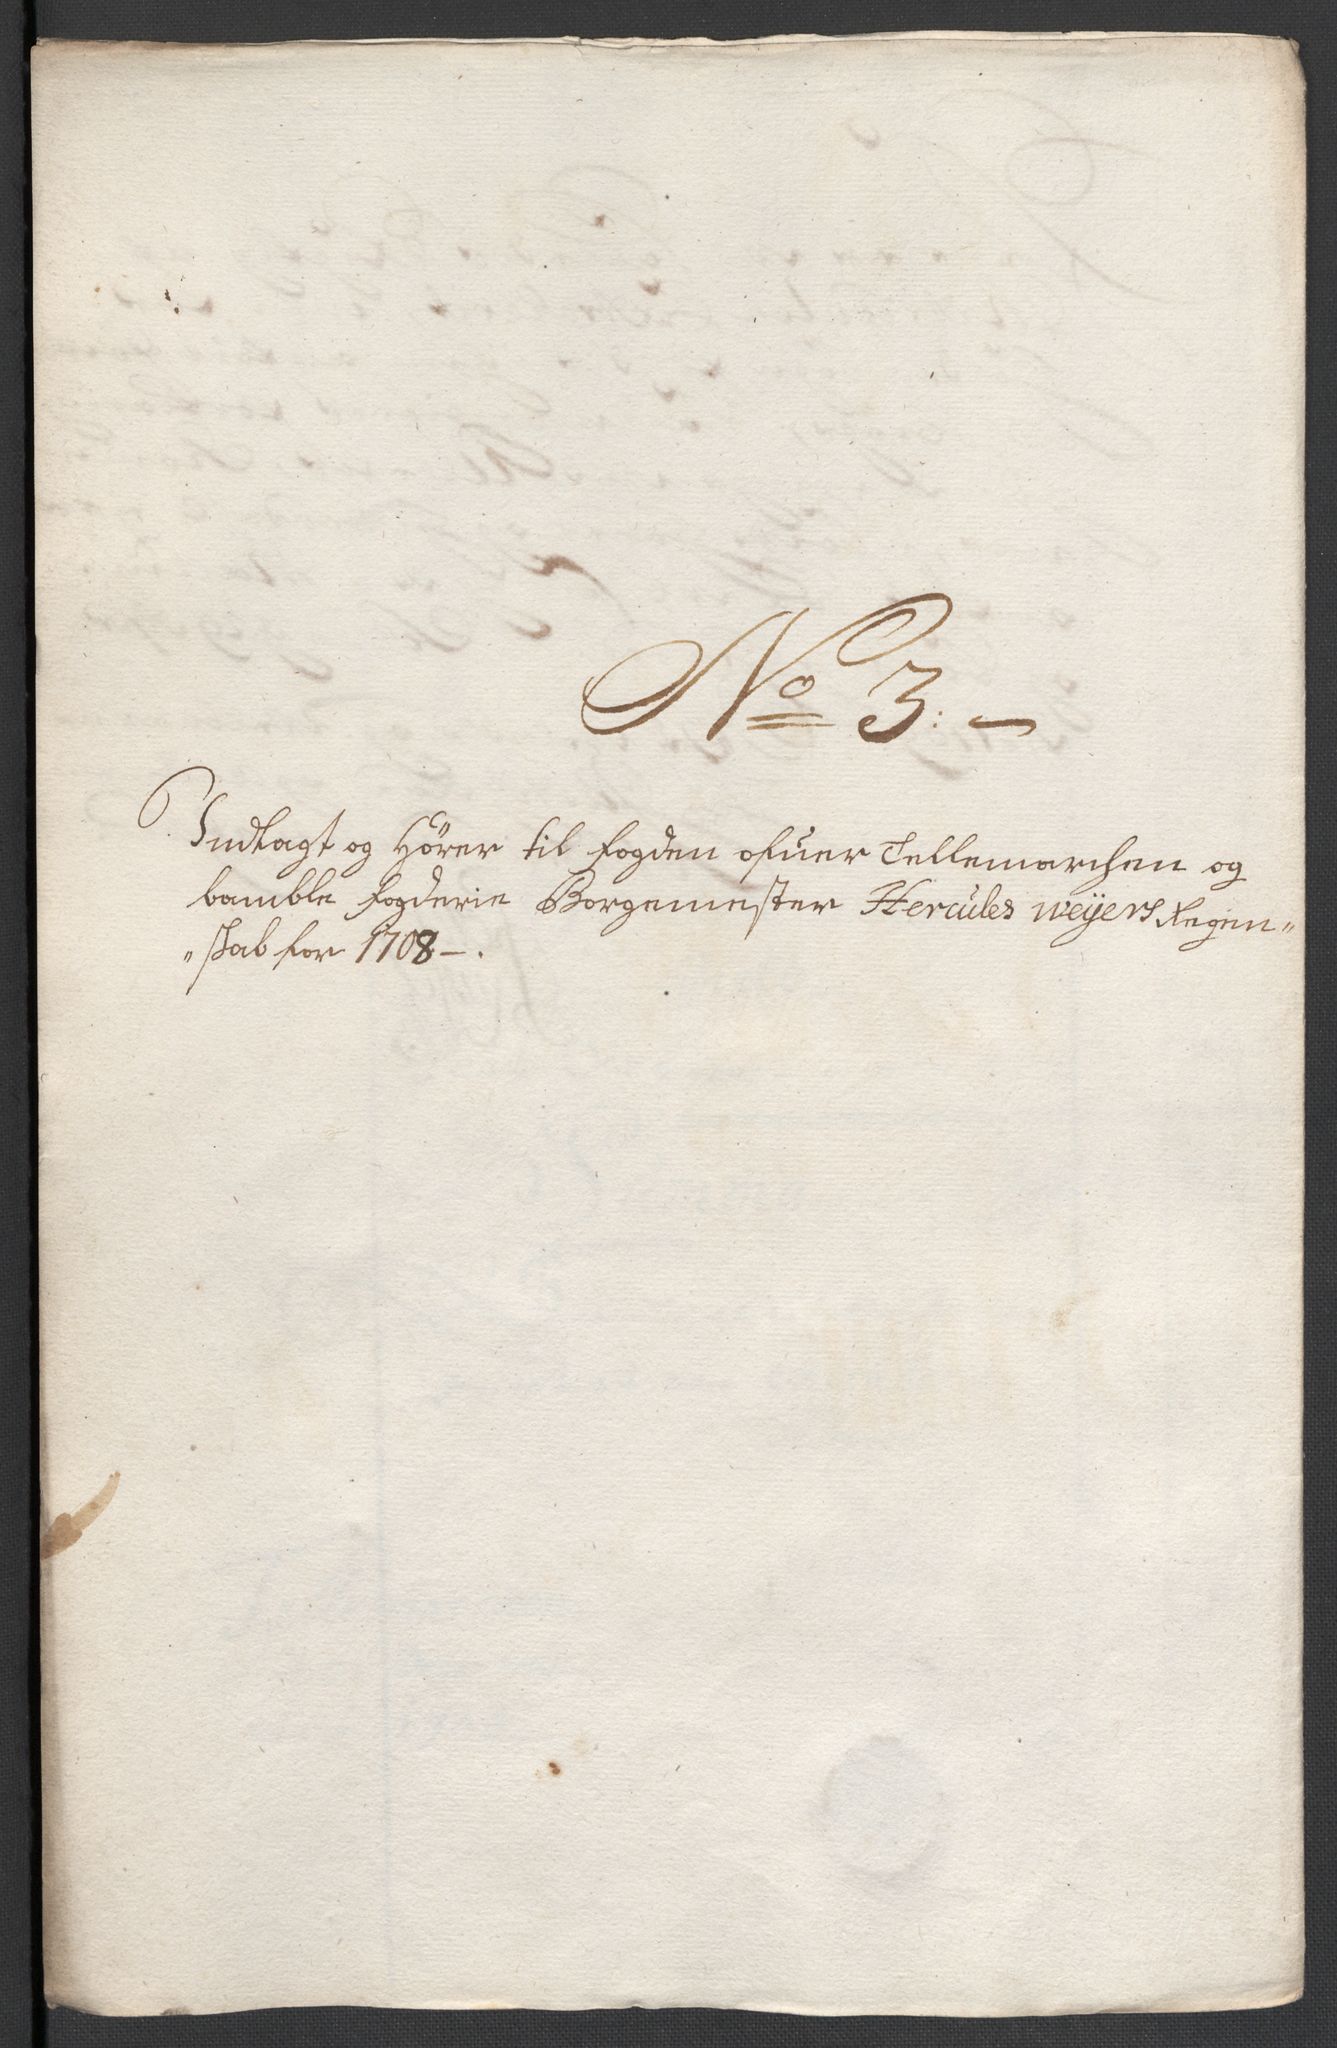 No 3: -
Indlagt og Hörer til fogden ofuer Tellemarchen og
bamble fogderie Borgemester Hercules weÿers Regen„
„skab for 1708 -.